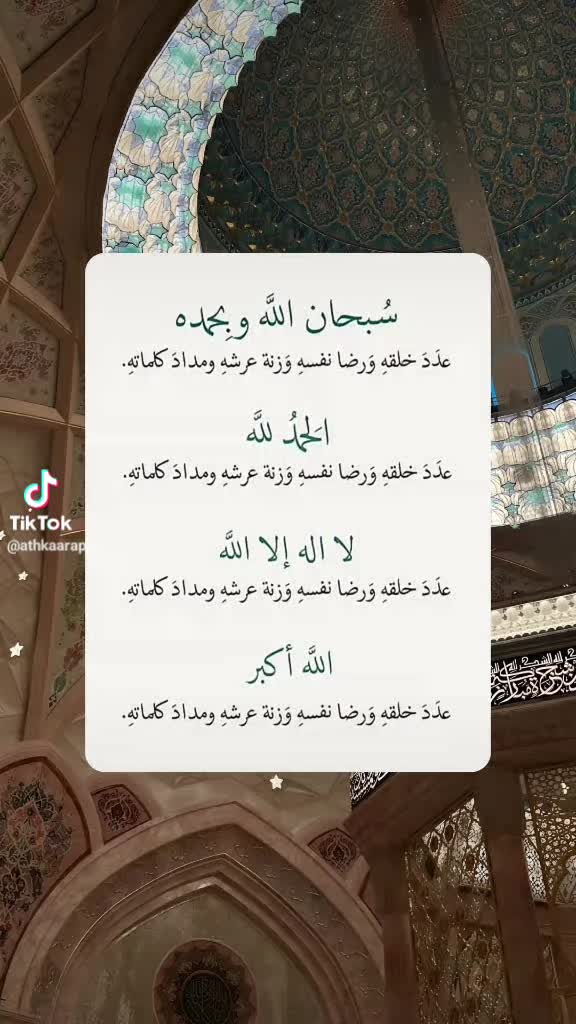 سُبحان اللَّه وبِحمده
عدَدَ خلقهِ وَرضا نفسهِ وَزنة عرشهِ ومدادَ كلماتهِ.
الَحمدُ للَّه
عدَدَ خلقهِ وَرضا نفسهِ وَزنة عرشهِ ومدادَ كلماتهِ.
لا اله إلا اللَّه
عدَدَ خلقهِ وَرضا نفسهِ وَزنة عرشهِ ومدادَ كلماتهِ.
اللَّه أكبر
عدَدَ خلقهِ وَرضا نفسهِ وَزنة عرشهِ ومدادَ كلماتهِ.
TikTok
@athkaarap